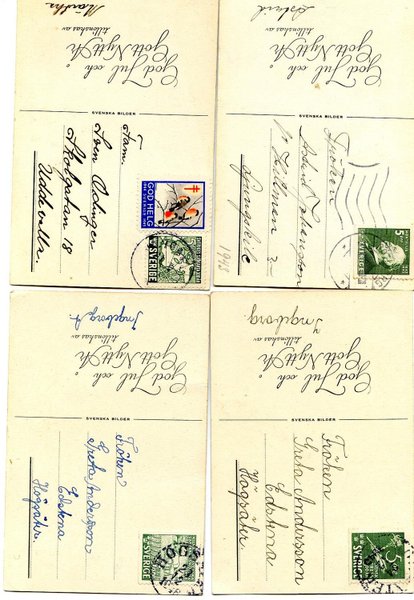 God Jul och
Gott Nytt År
tillönskas av
Märtha
SVENSKA BILDER
Fam.
Sven Odinger
Skolgatan 18
Uddevalla.
GOD HELG
SVERIGE
God Jul och
Gott Nytt År
tillönskas av
Astrid
SVENSKA BILDER
Fröken
Astrid Johansson
Ljungskile
1943
5
SVERIGE
God Jul och
Gott Nytt År
tillönskas av
Ingeborg A
SVENSKA BILDER
Fröken
Greta Andersson
Högsäter.
SVERIGE
God Jul och
Gott Nytt År
tillönskas av
Ingeborg
SVENSKA BILDER
Fröken
Greta Andersson
Högsäter.
5
SVERIGE